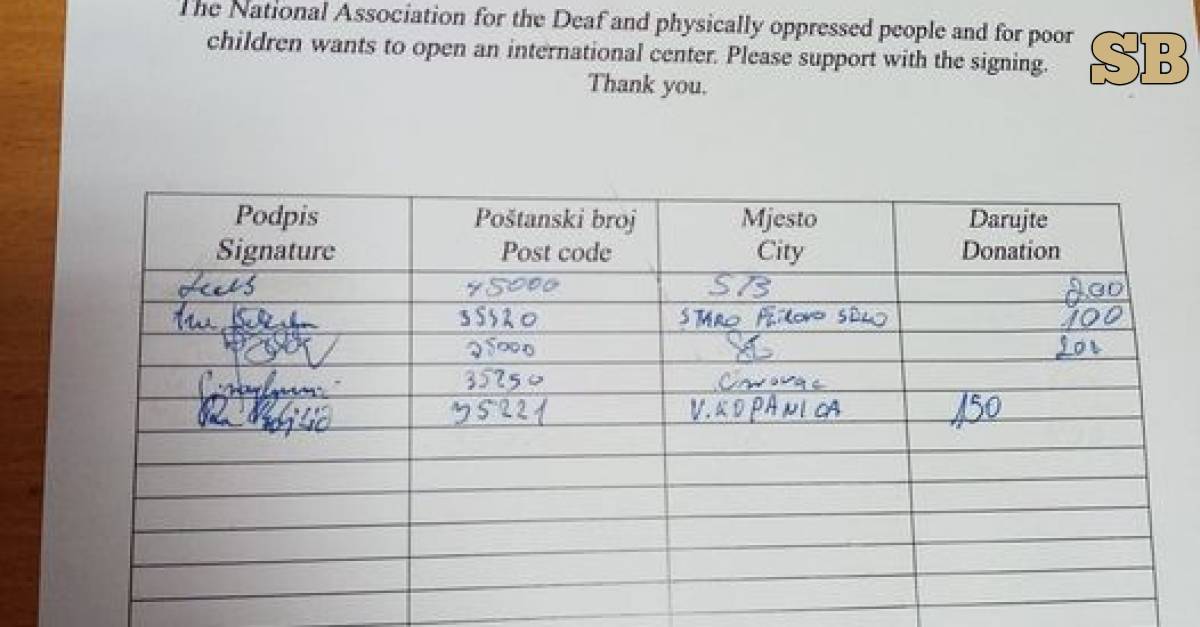 The National Association for the Deaf and physically oppressed people and for poor
children wants to open an international center. Please support with the signing.
Thank you.
SB
Podpis Poštanski broj Mjesto Darujte
Signature Post code City Donation
45000 SB 200
35420 STARO PETROVO SELO 100
35000 200
35250
35221 V. KOPANICA 150